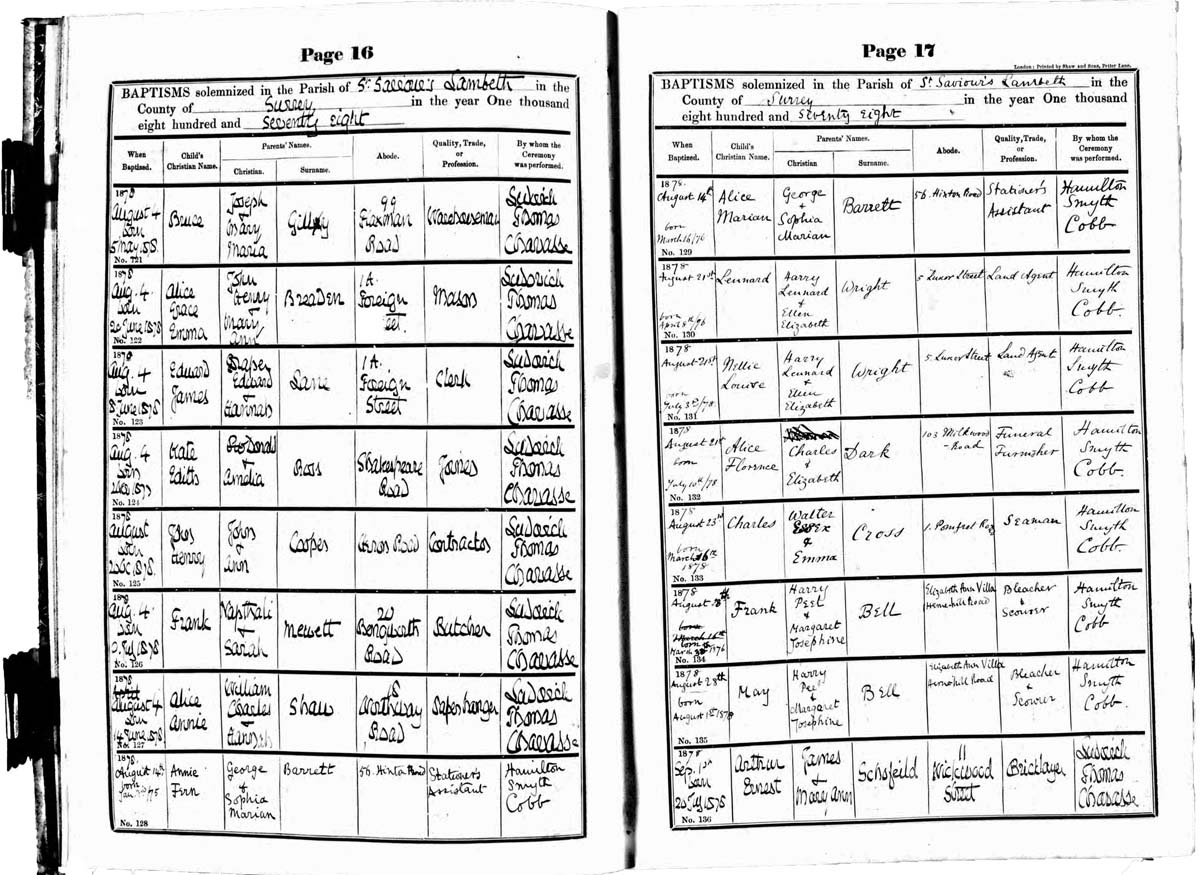 Page 16
BAPTISMS solemnized in the Parish of St Saviour's Lambeth in the
County of Surrey in the year One thousand
eight hundred and Seventy Eight
When Baptized. Child's Christian Name. Parents' Names. Christian. Surname. Abode. Quality, Trade, or Profession. By whom the Ceremony was performed.
1878
August 4
Born
5 May
No. 121
Bruce
Joseph
&
Mary
Maria
99
Flaxman
Road
Warehouseman
Thomas
Chavasse
1878
Aug. 4
Born
20 June 1878
No. 122
Alice
Grace
Emma
John
Henry
&
Mary
Ann
Breaden
1A.
Foreign
Street.
Mason
Thomas
Chavasse
1878
Aug. 4
Born
8 June 1878
No. 123
Edward
James
Edward
&
Hannah
Lane
1A.
Foreign
Street
Clerk
Thomas
Chavasse
1878
Aug. 4
Born
No. 124
Kate
Edith
&
Amelia
Ross
Shakespeare
Road
Joiner
Thomas
Chavasse
1878
August
Born
No. 125
John
Henry
John
&
Ann
Cooper
Road
Contractor
Thomas
Chavasse
1878
Aug. 4
Born
No. 126
Frank
Naphtali
&
Sarah
Mewett
20
Bengworth
Road
Butcher
Thomas
Chavasse
1878
August 4
Born
14 June 1878
No. 127
Alice
Annie
William
Charles
&
Hannah
Shaw
Northway
Road
Paperhanger
Thomas
Chavasse
1878.
August 14th
born
No. 128
Annie
Fern
George
&
Sophia
Marian
Barrett
56. Hinton Road
Stationer's
Assistant
Hamilton
Smyth
Cobb
Page 17
London: Printed by Shaw and Sons, Fetter Lane.
BAPTISMS solemnized in the Parish of St Saviour's Lambeth in the
County of Surrey in the year One thousand
eight hundred and Seventy Eight
When Baptized. Child's Christian Name. Parents' Names. Christian Surname. Abode. Quality, Trade, or Profession. By whom the Ceremony was performed.
1878.
August 14th
born
March 16/76
No. 129
Alice
Marian
George
&
Sophia
Marian
Barrett
56. Hinton Road
Stationer's
Assistant
Hamilton
Smyth
Cobb
1878
August 21st
born
April 8th/76
No. 130
Lennard
Harry
Lennard
&
Ellen
Elizabeth
Wright
5 Lunor Street
Land Agent
Hamilton
Smyth
Cobb.
1878
August 21st
born
July 3rd/78
No. 131
Nellie
Louise
Harry
Lennard
&
Ellen
Elizabeth
Wright
5. Lunor Street
Land Agent
Hamilton
Smyth
Cobb
1878
August 21st
born
July 10th/78
No. 132
Alice
Florence
Charles
&
Elizabeth
Dark
103 Milkwood
-Road
Funeral
Furnisher
Hamilton
Smyth
Cobb.
1878
August 23rd
born
March 16th
1878
No. 133
Charles
Walter
Essex
&
Emma
Cross
1. Pomfret Road
Seaman
Hamilton
Smyth
Cobb.
1878
August 28th
born
March 16th
born
March 1876
No. 134
Frank
Harry
Peel
&
Margaret
Josephine
Bell
Elizabeth Ann Villa
Hernehill Road
Bleacher
&
Scourer
Hamilton
Smyth
Cobb
1878
August 28th
born
August 1st 1878
No. 135
May
Harry
Peel
&
Margaret
Josephine
Bell
Elizabeth Ann Villa
Hernehill Road
Bleacher
&
Scourer
Hamilton
Smyth
Cobb.
1878
Sep. 1st
Born
20 July 1878
No. 136
Arthur
Ernest
James
&
Mary Ann
Schofeild
11
Wickwood
Street
Bricklayer
Thomas
Chavasse